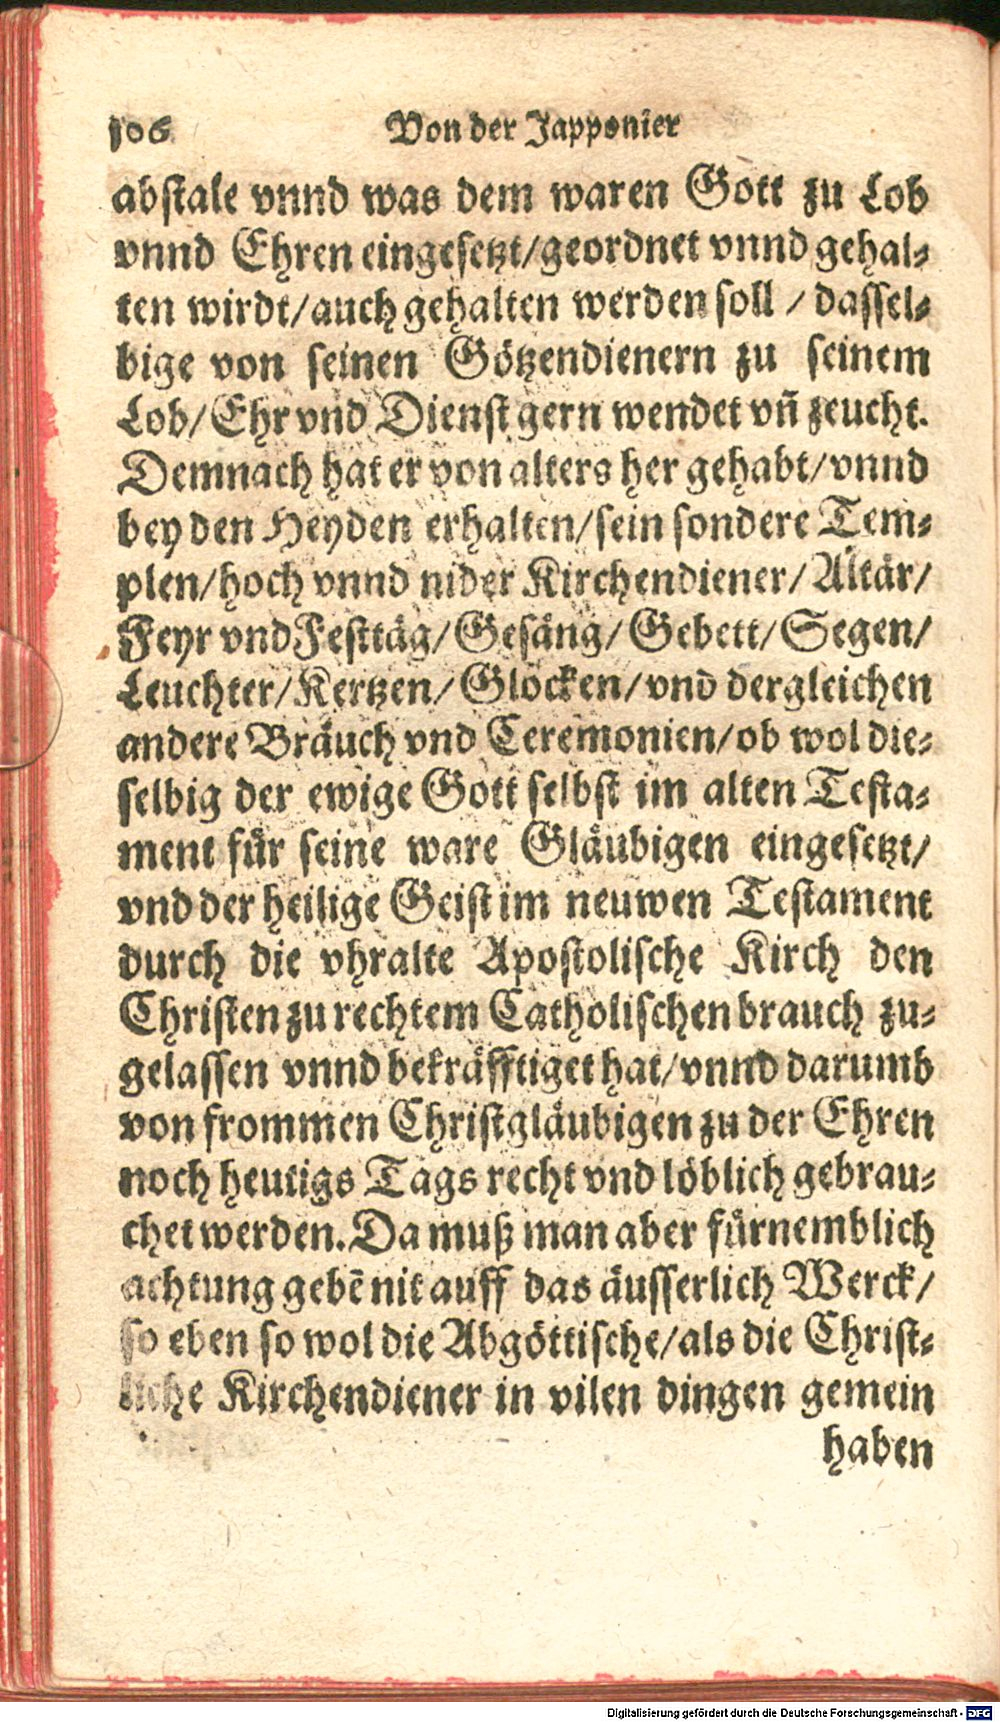 106 Von der Japponier
abstale vnnd was dem waren Gott zu Lob
vnnd Ehren eingesetzt/geordnet vnnd gehal-
ten wirdt/auch gehalten werden soll / dassel-
bige von seinen Götzendienern zu seinem
Lob/Ehr vnd Dienst gern wendet vñ zeucht.
Demnach hat er von alters her gehabt/vnnd
bey den Heyden erhalten/sein sondere Tem-
plen/hoch vnnd nider Kirchendiener/Altär/
Feyr vnd Festtäg/Gesäng/Gebett/Segen/
Leuchter/Kertzen/Glocken/vnd dergleichen
andere Bräuch vnd Ceremonien/ob wol die-
selbig der ewige Gott selbst im alten Testa-
ment für seine ware Gläubigen eingesetzt/
vnd der heilige Geist im neuwen Testament
durch die vhralte Apostolische Kirch den
Christen zu rechtem Catholischen brauch zu-
gelassen vnnd bekräfftiget hat/vnnd darumb
von frommen Christgläubigen zu der Ehren
noch heutigs Tags recht vnd löblich gebrau-
chet werden. Da muß man aber fürnemblich
achtung gebē nit auff das äusserlich Werck/
so eben so wol die Abgöttische/als die Christ-
liche Kirchendiener in vilen dingen gemein
haben
Digitalisierung gefördert durch die Deutsche Forschungsgemeinschaft - DFG